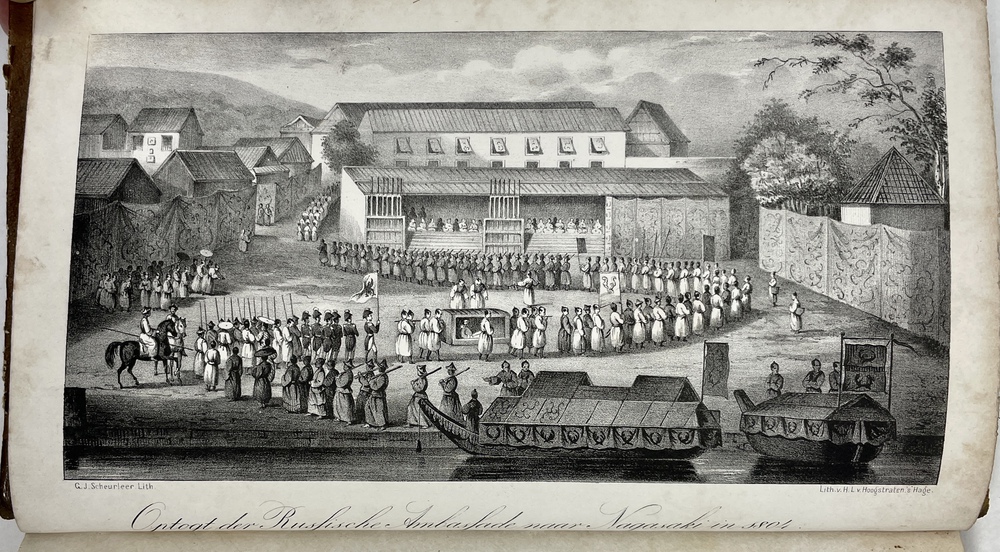 G. J. Scheurleer Lith.
Lith. v. H. L. v. Hoogstraten 's Hage.
Optogt der Russische Ambassade naar Nagasaki in 1804.